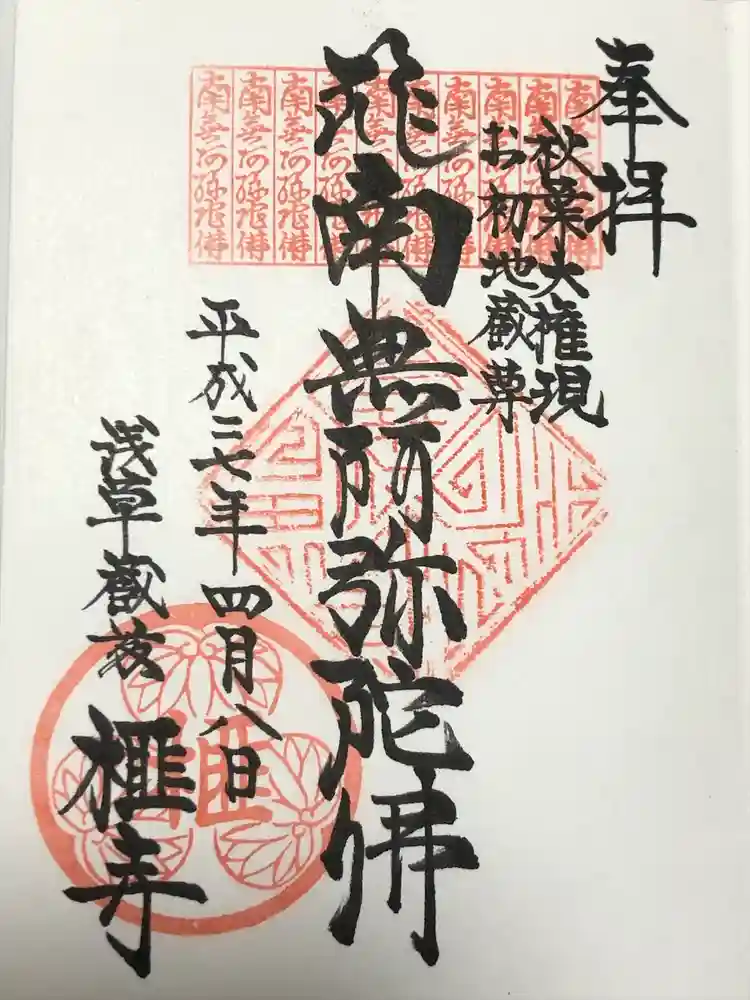 奉拝
秋葉大権現
お初地蔵尊
南無阿弥陀佛
平成二七年四月八日
浅草蔵前
榧寺
南無阿弥陀佛
南無阿弥陀佛
南無阿弥陀佛
南無阿弥陀佛
南無阿弥陀佛
南無阿弥陀佛
南無阿弥陀佛
南無阿弥陀佛
南無阿弥陀佛
南無阿弥陀佛
榧